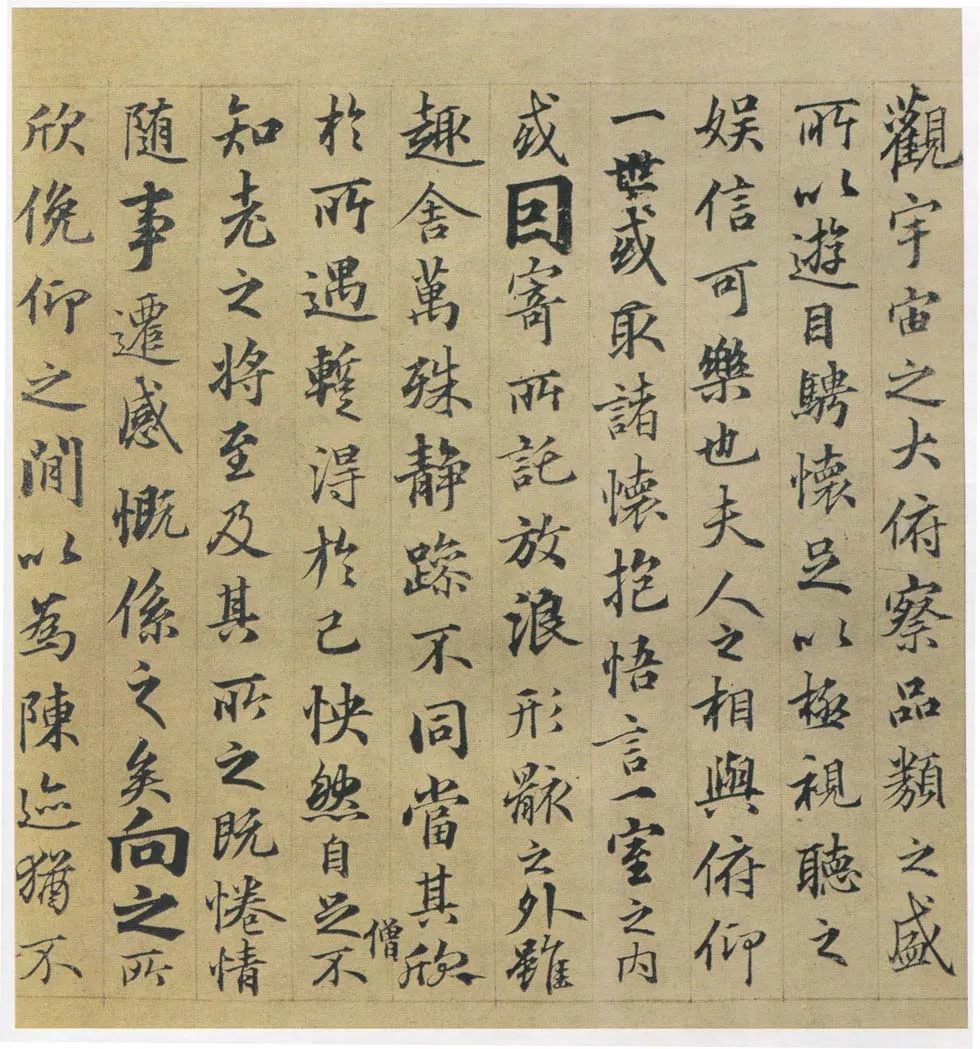 觀宇宙之大俯察品類之盛
所以遊目騁懷足以極視聽之
娛信可樂也夫人之相與俯仰
一世或取諸懷抱悟言一室之內
或因寄所託放浪形骸之外雖
趣舍萬殊靜躁不同當其欣
於所遇暫得於己怏然自足不
僧
知老之將至及其所之既惓情
隨事遷感慨係之矣向之所
欣俛仰之閒以為陳迹猶不